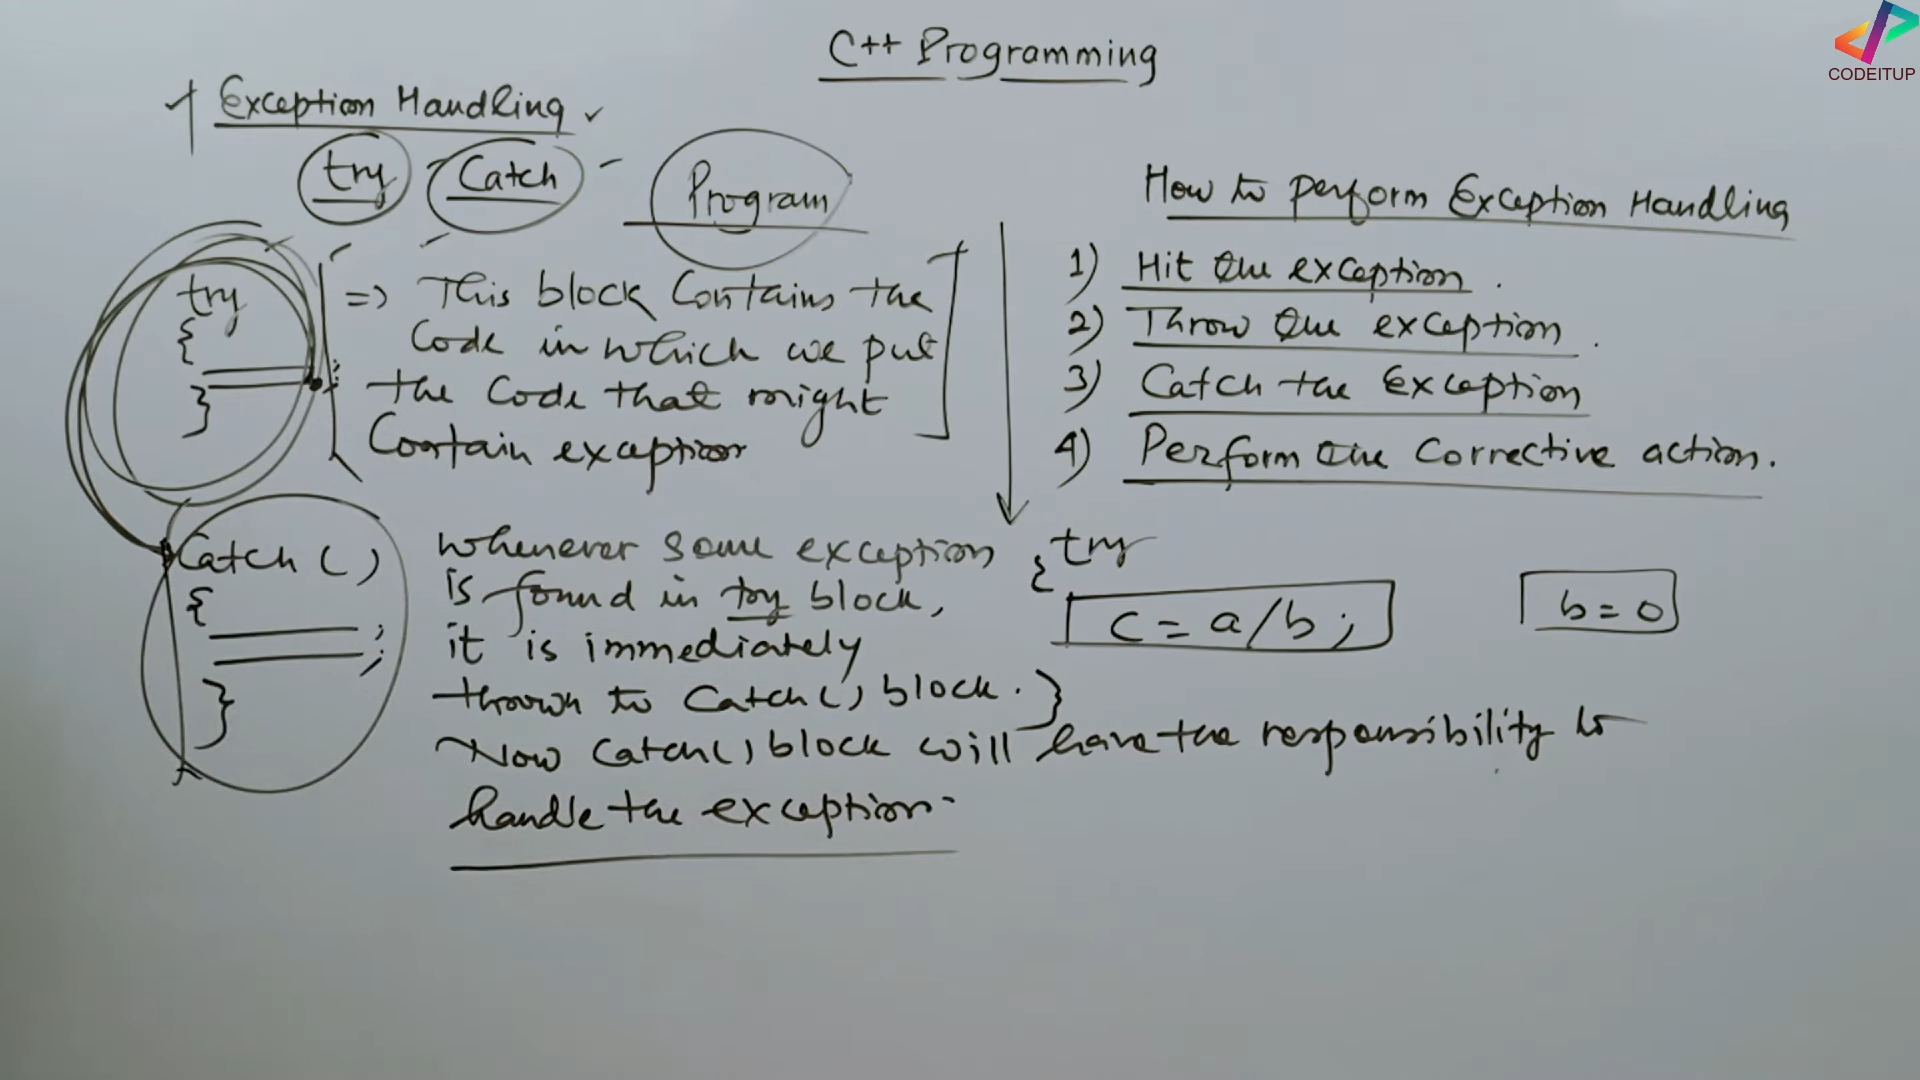 C++ Programming
CODEITUP
Exception Handling
try Catch Program
try
{
}
=> This block Contains the
Code in which we put
the Code that might
Contain exception
Catch ( )
{
;
;
}
Whenever some exception
is found in try block,
it is immediately
thrown to Catch() block.
Now Catch() block will have the responsibility to
handle the exception.
How to perform Exception Handling
1) Hit the exception.
2) Throw the exception.
3) Catch the Exception
4) Perform the Corrective action.
try
{
c = a/b;
b = 0
}